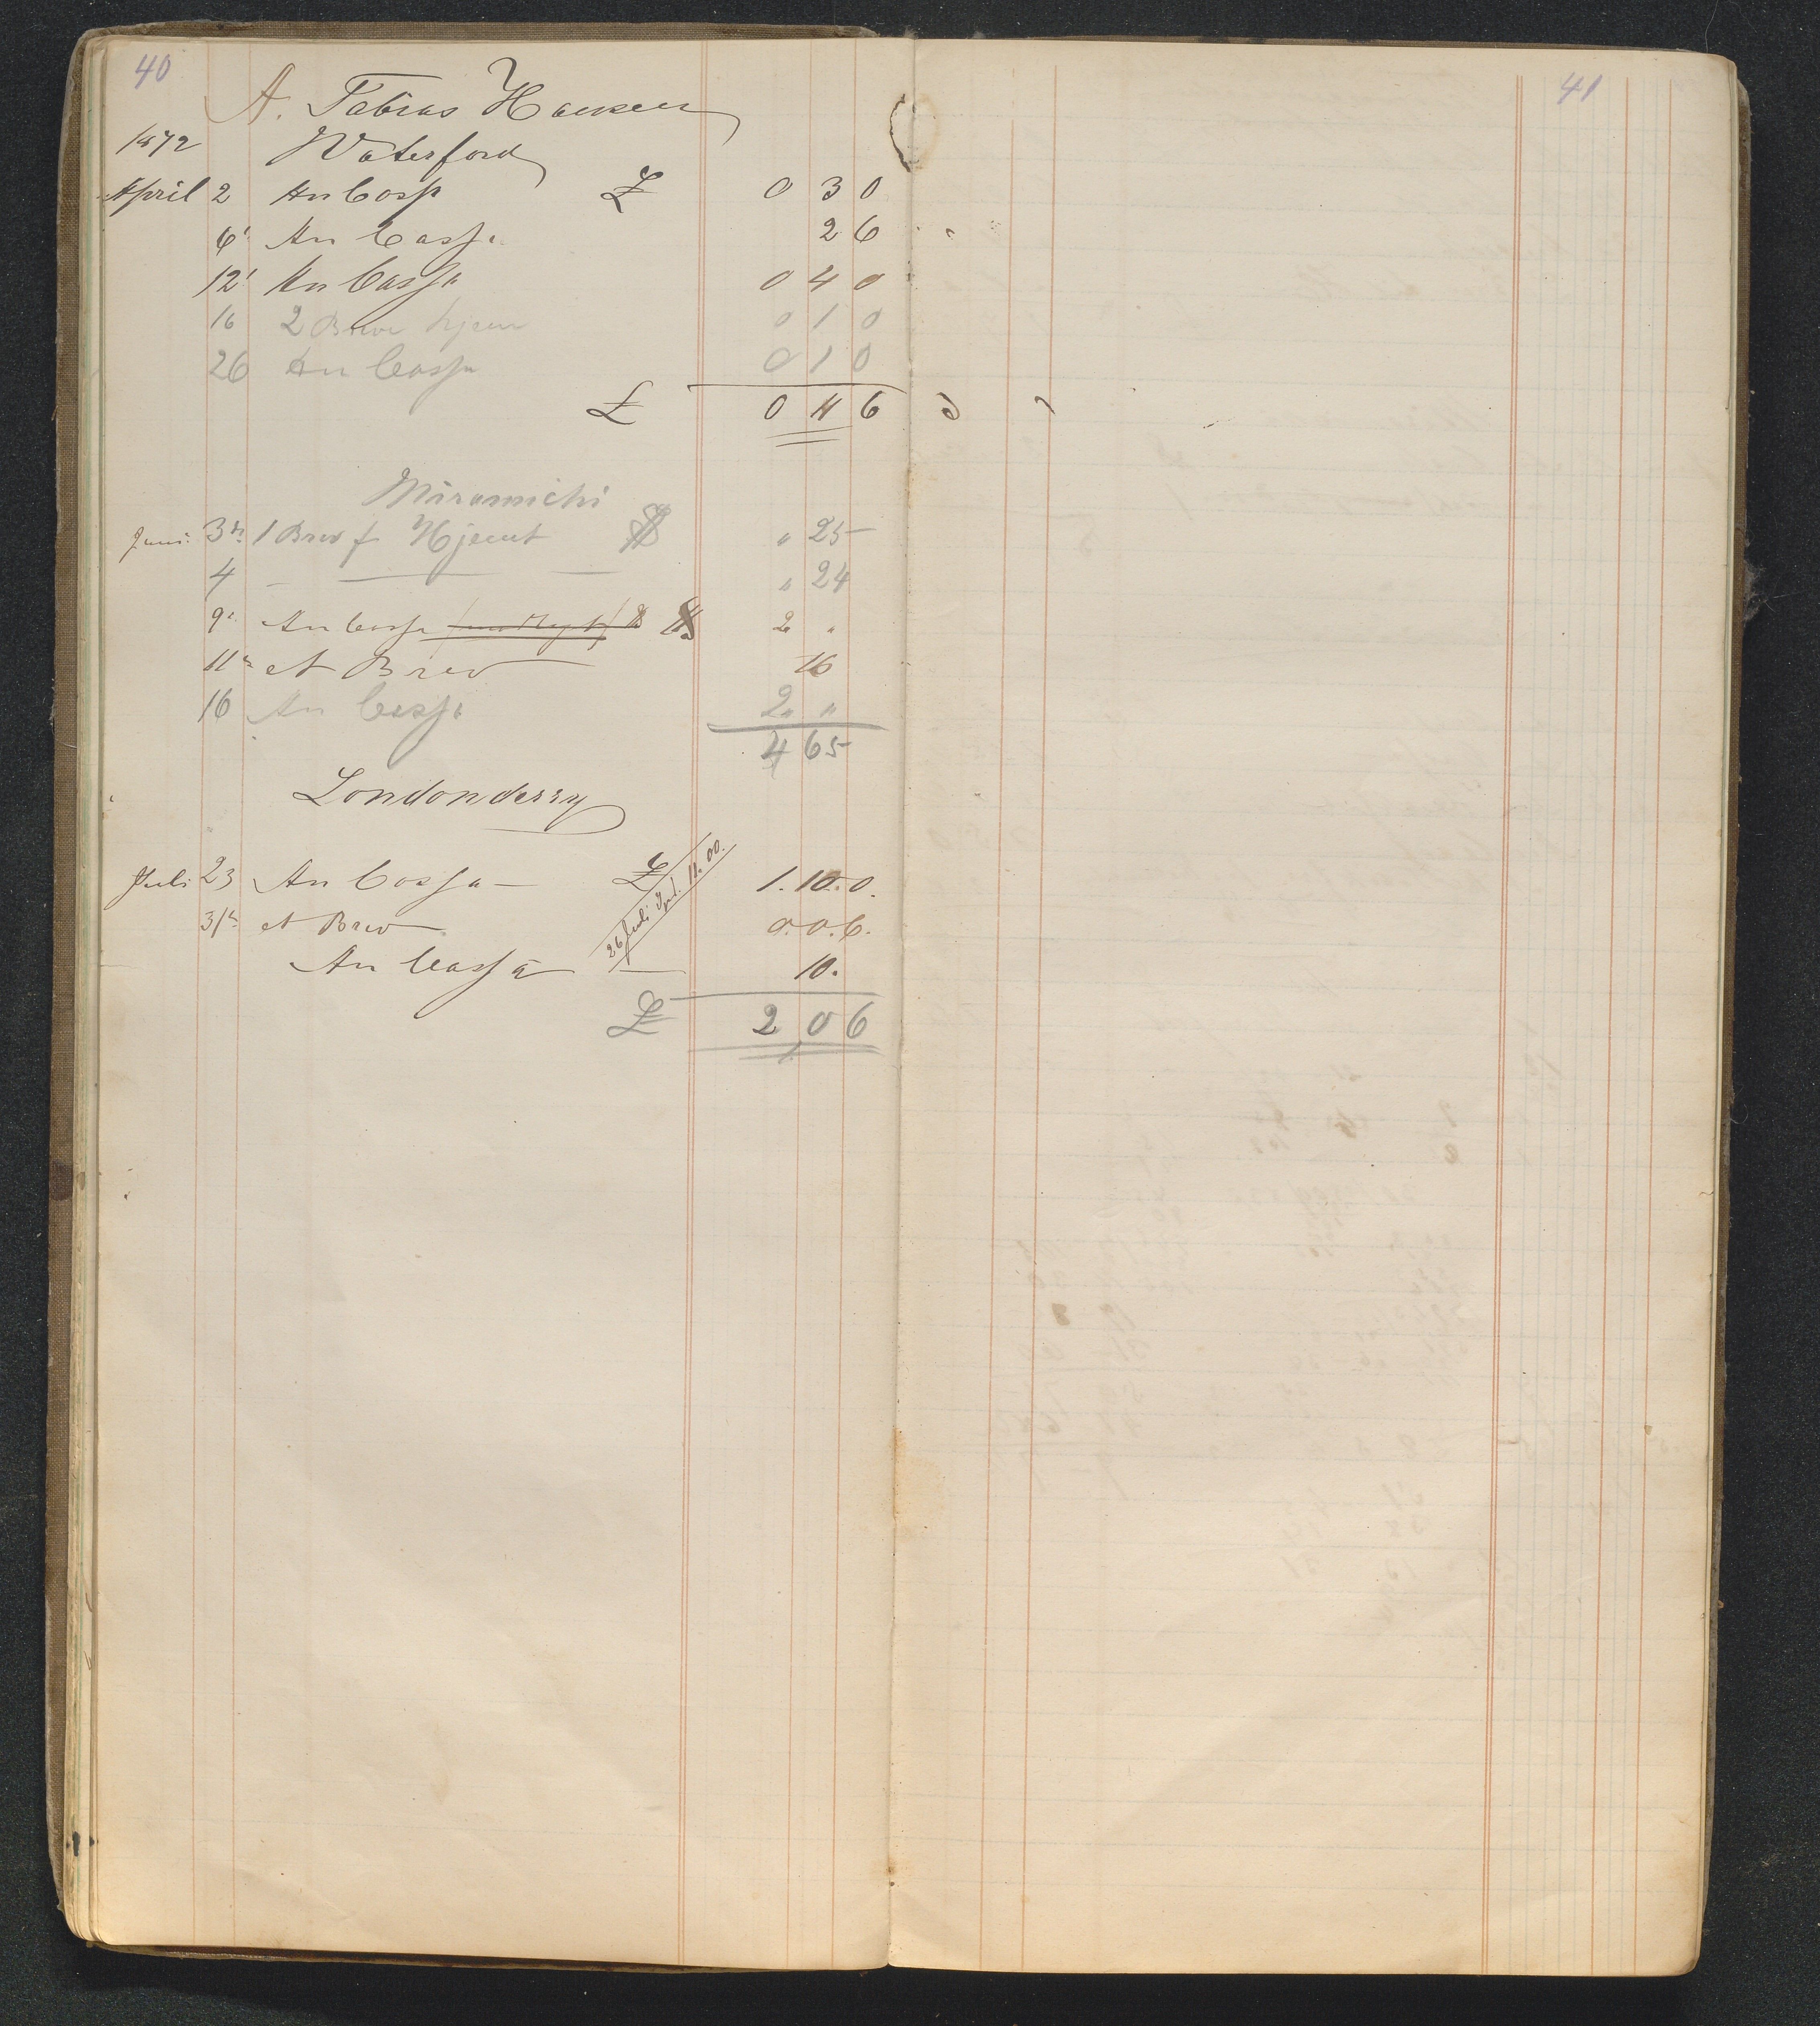 40
A. Tobias Hansen
1872 Waterford
April 2 An Cassa £ 0 3 0
6' An Cassa 2 6
12' An Cassa 0 4 0
16 2 Breve hjem 0 1 0
26 An Cassa 0 1 0
£ 0 11 6
Miramichi
Juni 3de 1 Brev f Hjemt $ " 25
4 — — — " 24
9' An Cassa $ 2 "
11te et Brev 16
16 An Cassa 2 " "
4 65
Londonderry
Juli 23 An Cassa — £ 1. 10. 0.
26 Juli 11.00.
31te et Brev 0. 0. 6.
An Cassa — 10.
£ 2 0 6
41